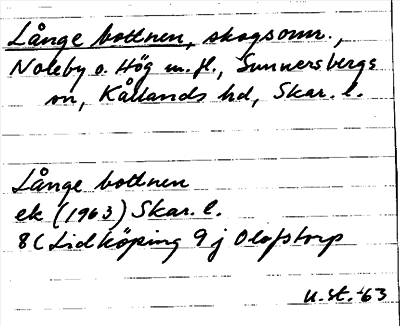 Långe bottnen, skogsomr.,
Noleby o. Hög m. fl., Sunnersbergs
sn, Kållands hd, Skar. l.
Långe bottnen
ek (1963) Skar. l.
8C Lidköping 9 j Olofstorp
U. St. -63